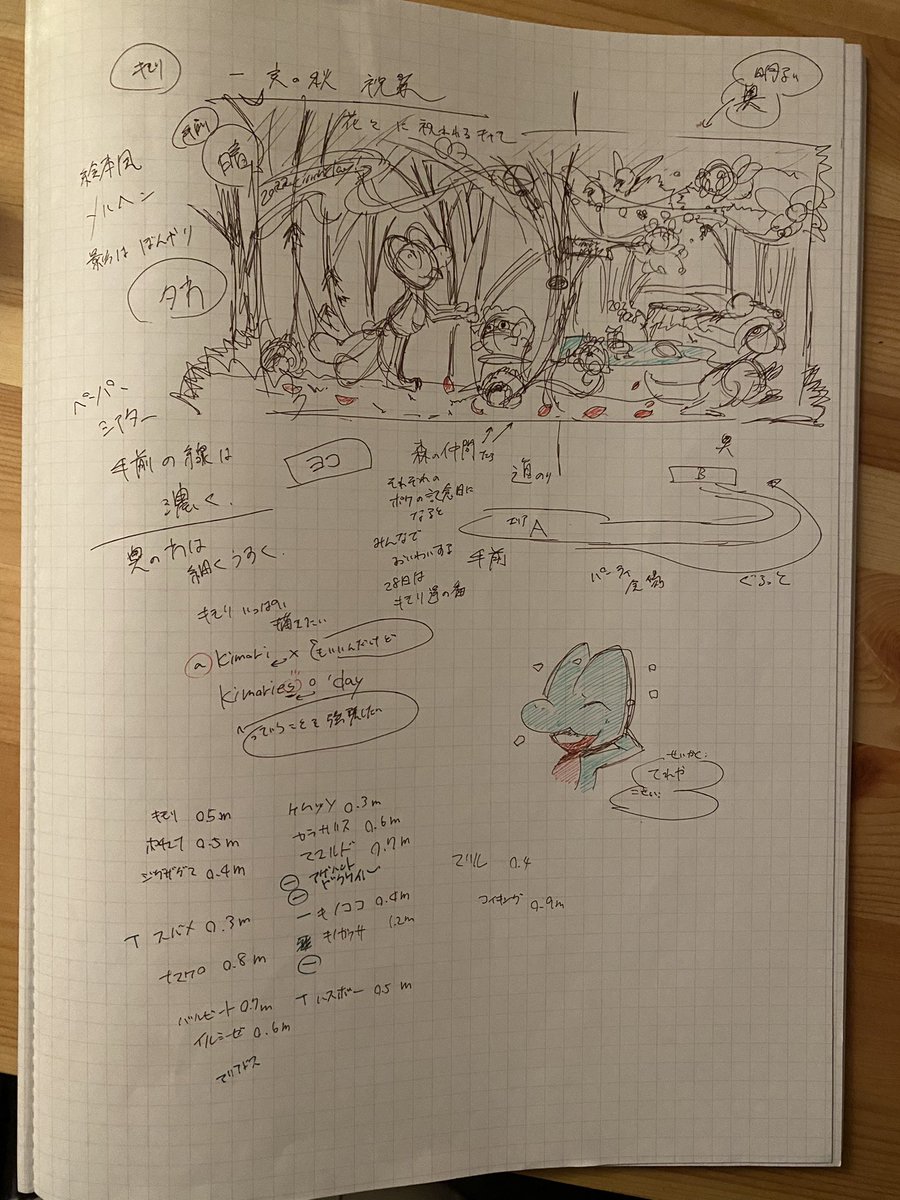 キモリ
一家の秋 祝祭
明るい
奥
手前
暗
花々に祝われるキャモ
絵本風
メルヘン
影はぼんやり
夕方
ペーパー
シアター
手前の線は
濃く。
奥の方は
細くうすく。
ヨコ
森の仲間たち
それぞれの
ポケの記念日に
なると
みんなで
おいわいする
28日は
キモリ達の番
道のり
奥
B
エリア A
手前
パーティ
会場
ぐるっと
キモリいっぱい
描きたい
a kimori × もいいんだけど
kimories' day
っていうことを強調したい
せいかく:
てれや
こせい:
キモリ 0.5m
ポチエナ 0.5m
ジグザグマ 0.4m
スバメ 0.3m
ナマケロ 0.8m
バルビート 0.7m
イルミーゼ 0.6m
アリアドス
ケムッソ 0.3m
カラサリス 0.6m
マユルド 0.7m
アゲハント
ドクケイル
キノココ 0.4m
キノガッサ 1.2m
ハスボー 0.5m
マリル 0.4
コイキング 0.9m